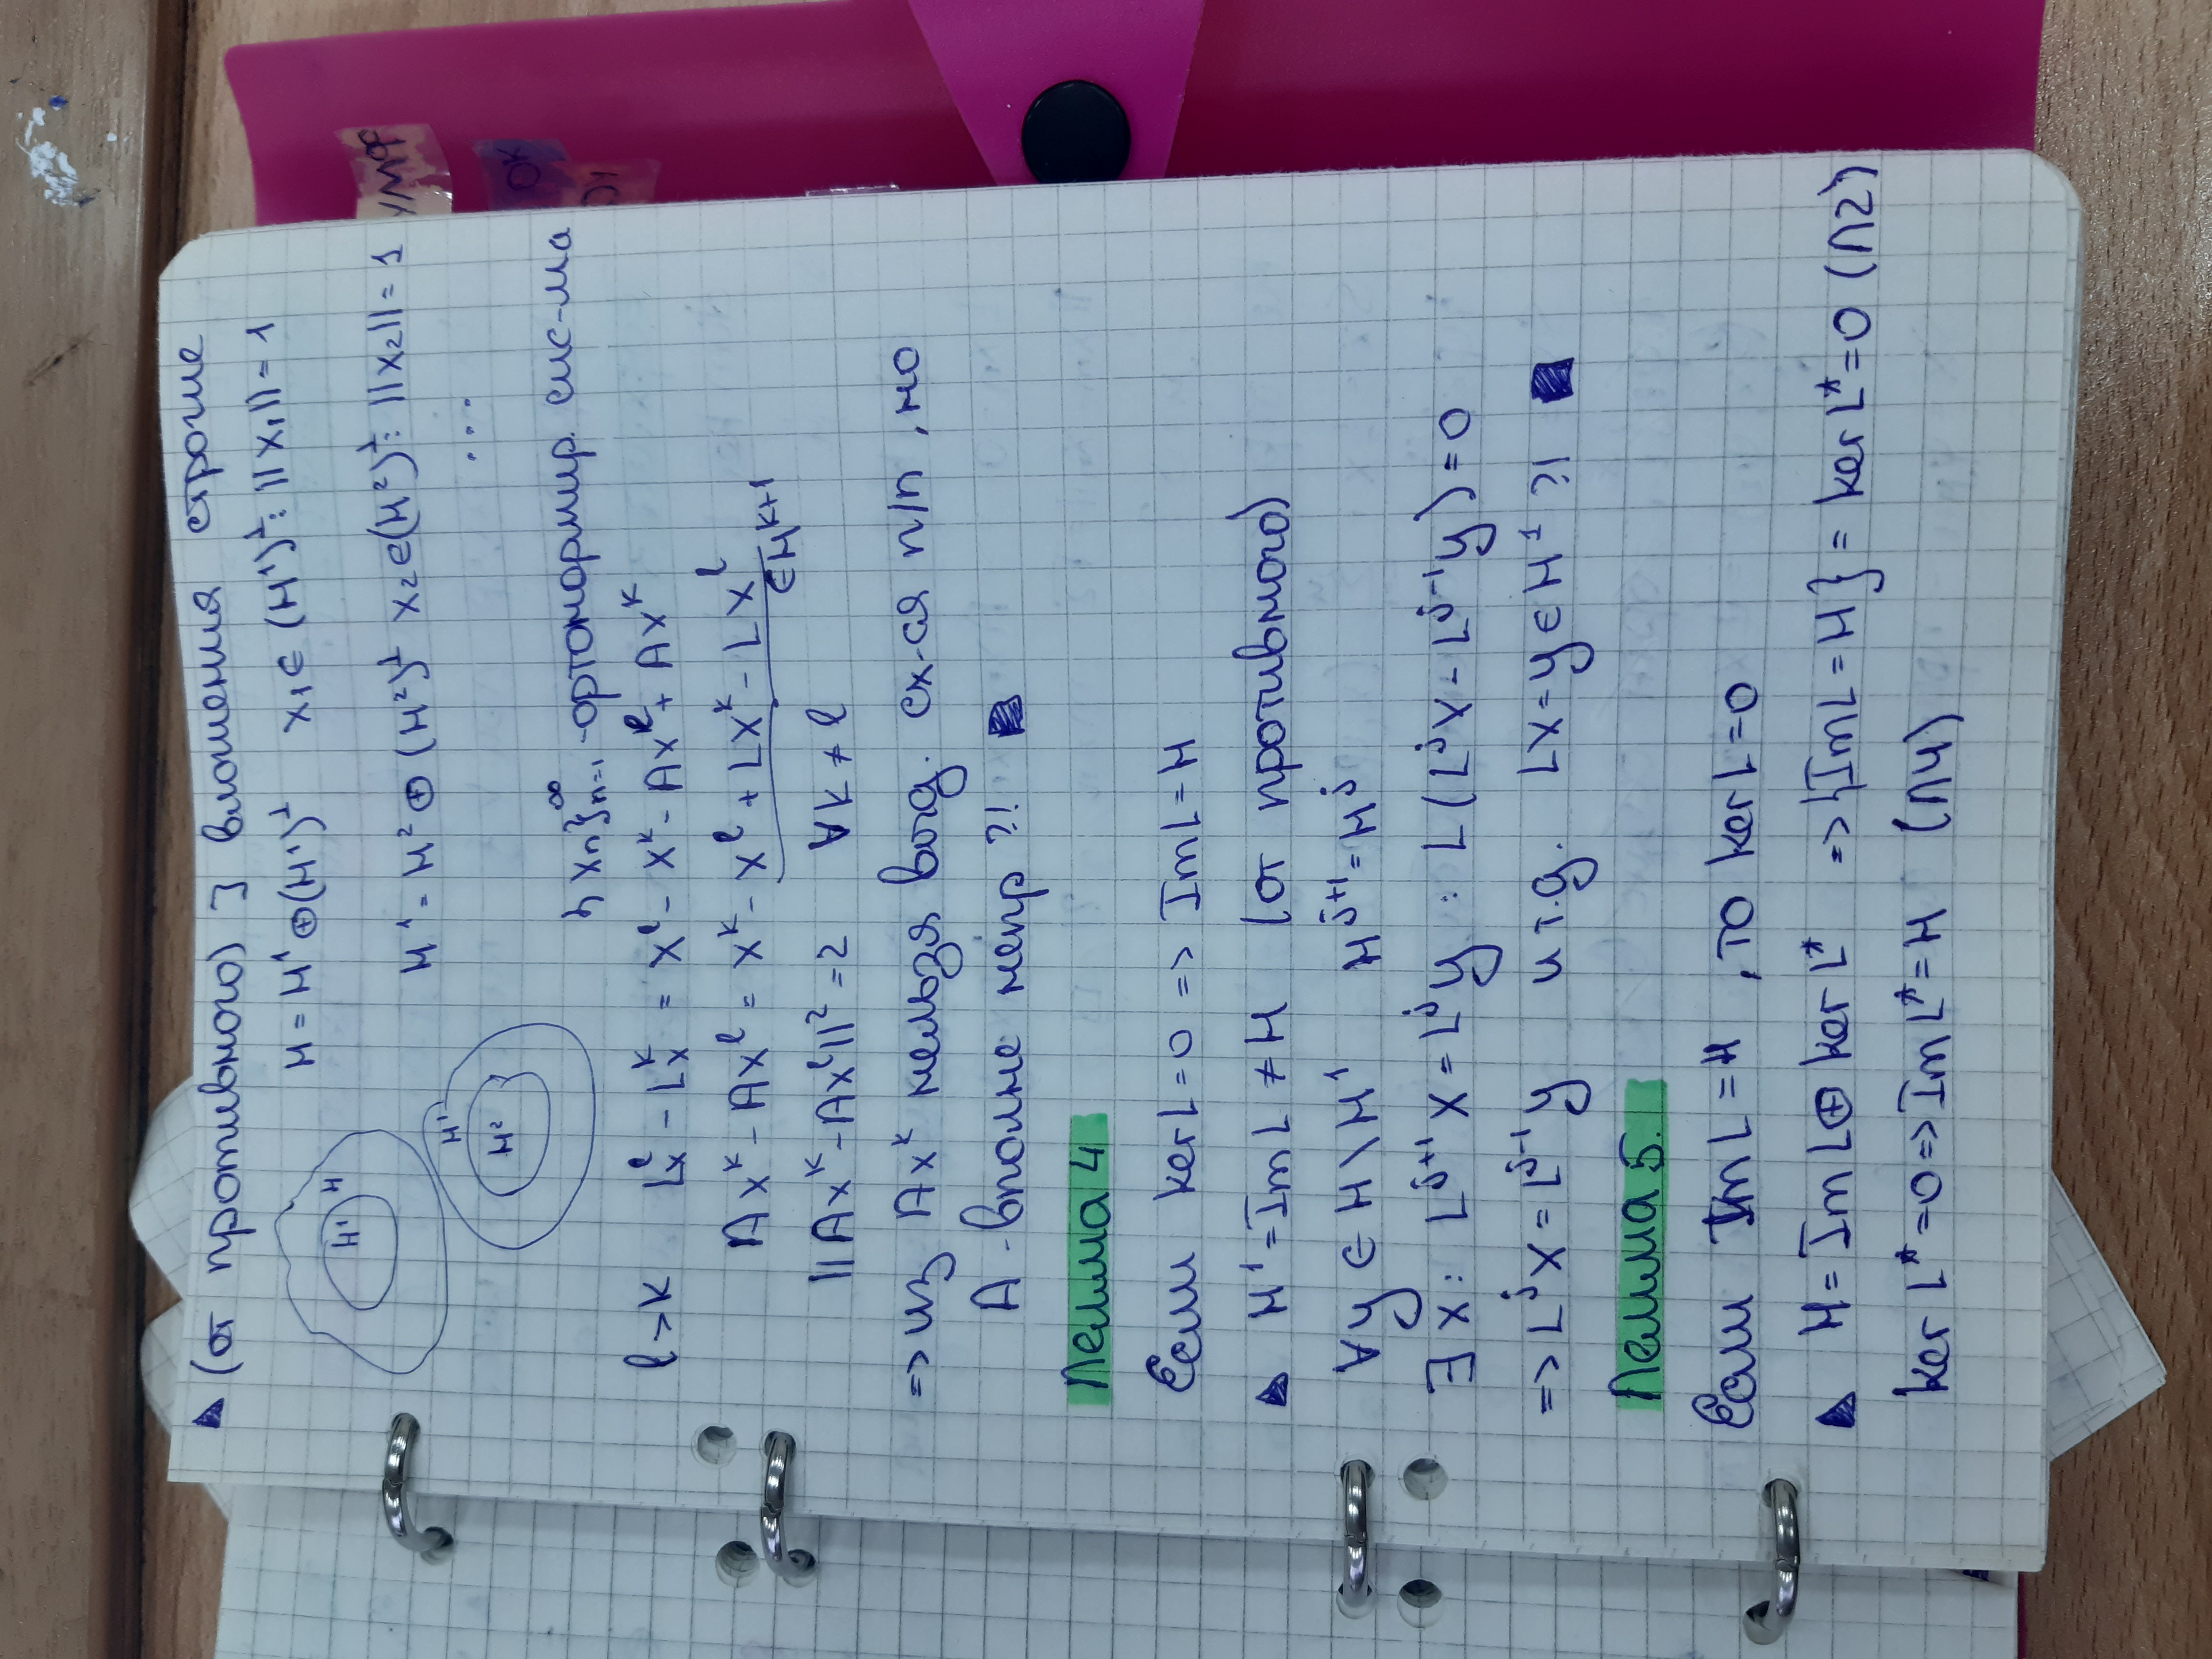 ▲ (от противного) ∃ вложения строгие
H = H¹ ⊕ (H¹)^⊥ x₁ ∈ (H¹)^⊥: ||x₁|| = 1
H¹ H
H¹ = H² ⊕ (H²)^⊥ x₂ ∈ (H²)^⊥: ||x₂|| = 1
H¹ H²
...
{xₙ}ₙ₌₁^∞ - ортонормир. сис-ма
l > k Lx^l - Lx^k = x^l - x^k - Ax^l + Ax^k
Ax^k - Ax^l = x^k - x^l + Lx^k - Lx^l
∈ H^{k+1}
||Ax^k - Ax^l||² = 2 ∀ k ≠ l
=> из Ax^k нельзя выд. сх-ся п/п, но
A - вполне непр ?! ■
Лемма 4
Если ker L = 0 => Im L = H
▲ H¹ = Im L ≠ H (от противного)
∀y ∈ H \ H¹ H^{j+1} = H^j
∃x: L^{j+1}x = L^j y : L(L^j x - L^{j-1}y) = 0
=> L^j x = L^{j-1}y и т.д. Lx = y ∈ H¹ ?! ■
Лемма 5.
Если Im L = H, то ker L = 0
▲ H = Im L ⊕ ker L* => {Im L = H} = ker L* = 0 (Л2)
ker L* = 0 <=> Im L* = H (Л4)
У/МФ
ОК